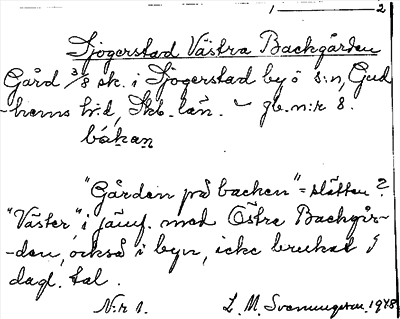 1 — 2
Sjogerstad Västra Backgården
Gård 3/8 sk. i Sjogerstad by o s:n, Gud-
-hems h:d, Skb. län. gb.n:r 8.
båkan
"Gården på backen" = slätten?
"Väster" i jämf. med Östra Backgår-
-den, också i byn, icke brukat i
dagl. tal.
N:r 1. L. M. Svenungsson 1948